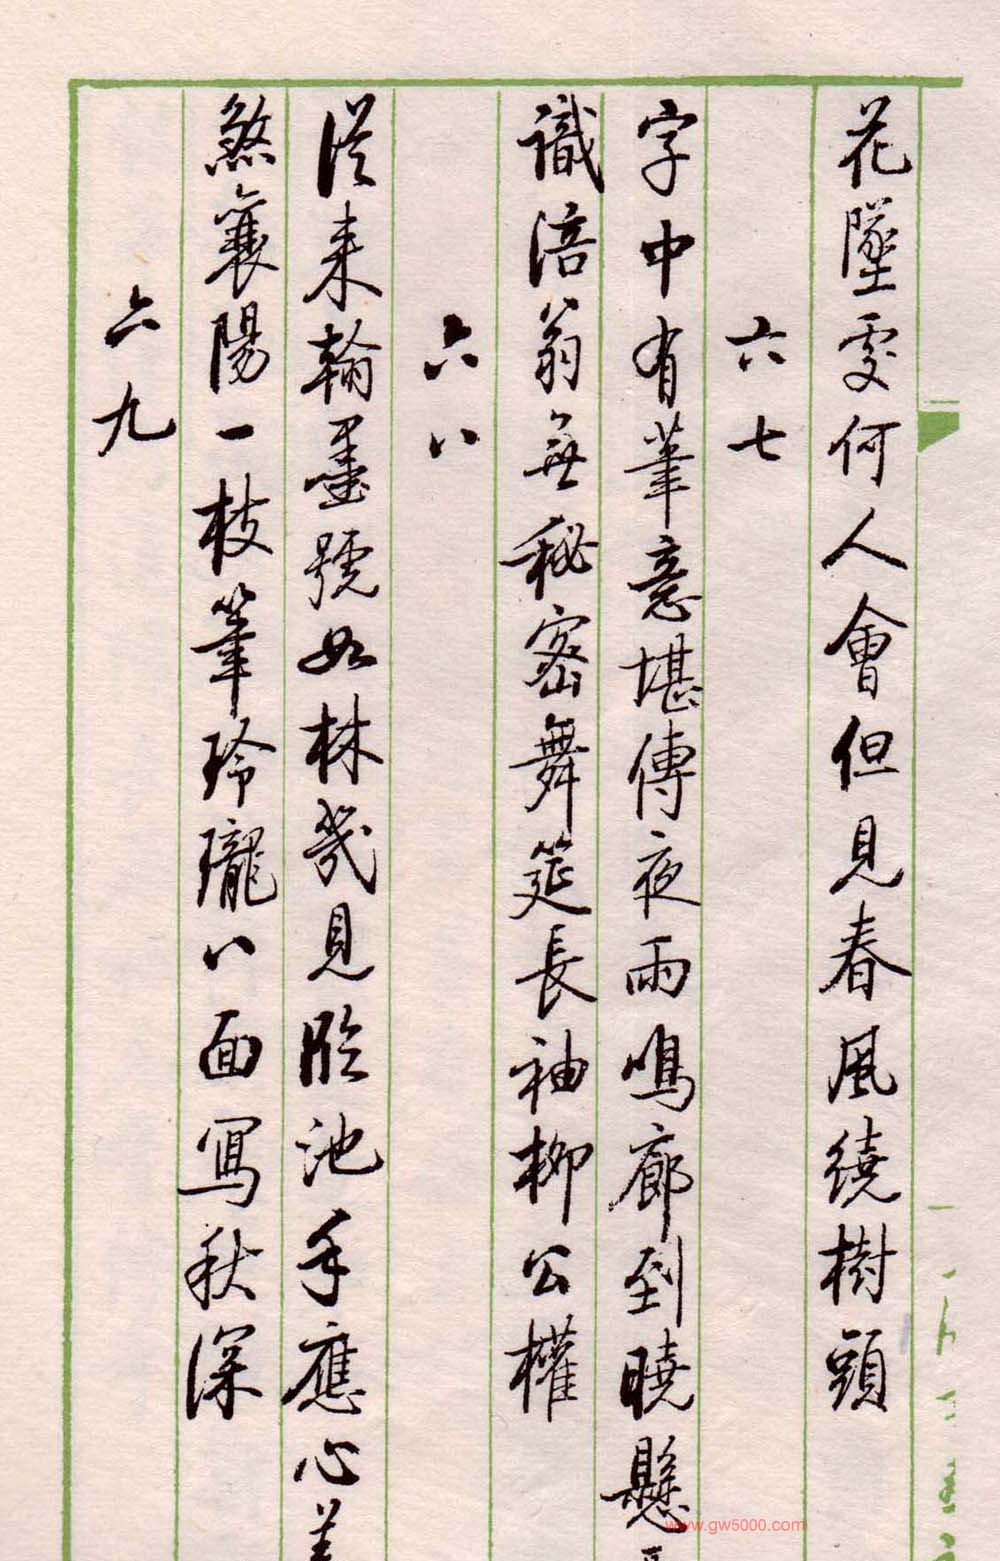 花墜處何人會但見春風繞樹頭
六七
字中有筆意堪傳夜雨鳴廊到曉懸
識涪翁無秘密舞筵長袖柳公權
六八
從來翰墨號如林幾見臨池手應心羨
煞襄陽一枝筆玲瓏八面寫秋深
六九
www.gw5000.com